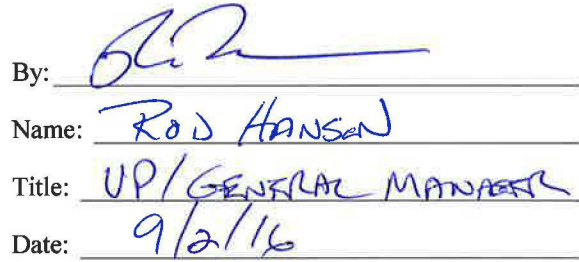 By:
Name: ROD HANSEN
Title: VP/GENERAL MANAGER
Date: 9/2/16